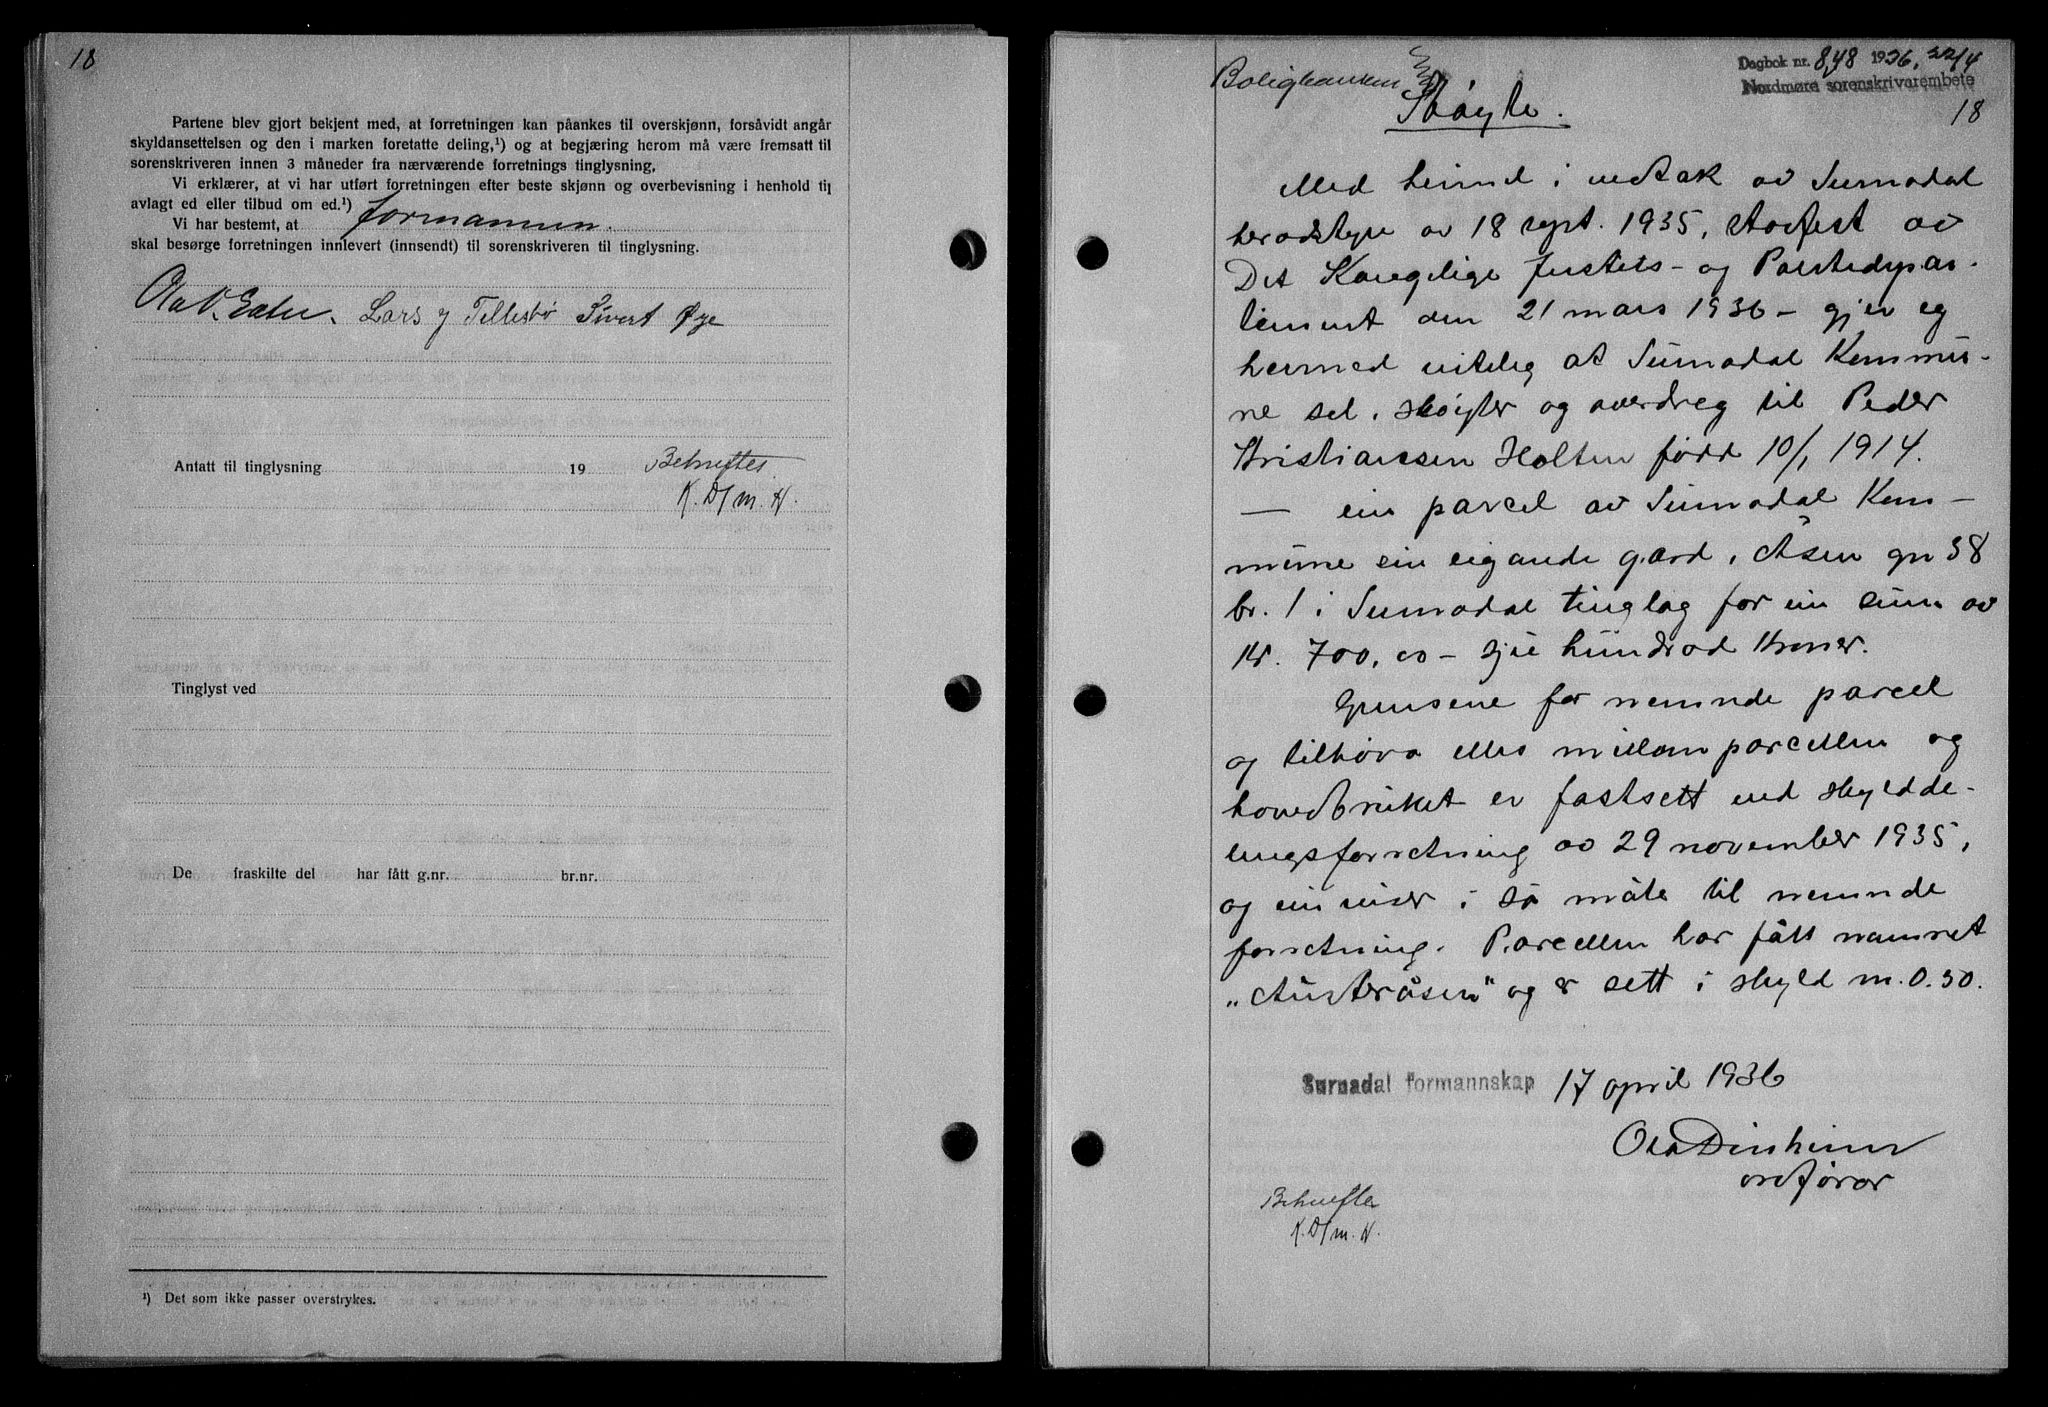 18
Partene blev gjort bekjent med, at forretningen kan påankes til overskjønn, forsåvidt angår
skyldansettelsen og den i marken foretatte deling,¹) og at begjæring herom må være fremsatt til
sorenskriveren innen 3 måneder fra nærværende forretnings tinglysning,
Vi erklærer, at vi har utført forretningen efter beste skjønn og overbevisning i henhold til
avlagt ed eller tilbud om ed.¹)
Vi har bestemt, at formannen.
skal besørge forretningen innlevert (innsendt) til sorenskriveren til tinglysning.
Lars J Tellesbø Sivert Øye
Antatt til tinglysning 19
Bekreftes
K. D/m. H.
Tinglyst ved
De fraskilte del har fått g.nr. br.nr.
¹) Det som ikke passer overstrykes.
Dagbok nr. 848 1936, 22/4
Nordmøre sorenskrivarembete
18
Boligbanken
Skøyte.
Med heimel i vedtak av Surnadal
heradstyre av 18 sept. 1935, stadfest av
Det Kongelige Justets- og Politidepar-
tement den 21 mars 1936 - gjer eg
hermed vitelig at Surnadal Kommu-
ne sel, skøyter og overdreg til Peder
Kristianssen Holten född 10/1 1914.
— ein parcel av Surnadal Kom-
mune sin eigande gard, Åsen gn 38
br. 1 i Surnadal tinglag for ein sum av
kr. 700,00 - sju hundrad kroner.
Grensene for nemnde parcel
og tilhøva elles millom parcellen og
hovedbruket er fastsett ved skyldde-
lingsforretning av 29 november 1935,
og ein viser i så måte til nemnde
forretning. Parcellen har fått namnet
„Austeråsen" og er sett i skyld m. 0.30.
Surnadal formannskap 17 april 1936
ordførar
Bekrefter
K. D/m. H.